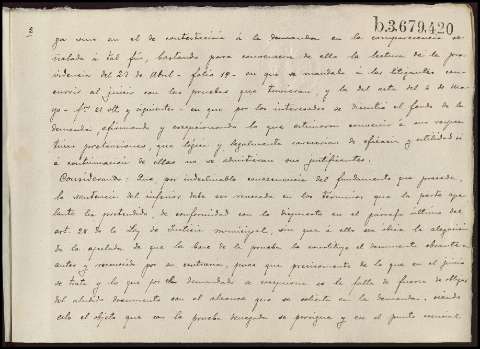 2
b.3.679.420
ga sino en el de contestación á la demanda en la comparecencia se-
ñalada á tal fin, bastando para convencerse de ello la lectura de la pro-
videncia del 27 de Abril - folio 19 - en que se mandaba á los litigantes con-
currir al juicio con las pruebas que tuvieran, y la del acta del 4 de Ma-
yo - fº 21 vtº y siguientes - en que por los interesados se discutió el fondo de la
demanda, afirmando y excepcionando lo que estimaron convenir á sus respec-
tivas pretensiones, que lógica y legalmente carecerían de eficacia y utilidad si
á continuación de ellas no se admitieran sus justificantes.
Considerando: Que, por indeclinable consecuencia del fundamento que precede,
la sentencia del inferior debe ser revocada en los términos que la parte ape-
lante ha pretendido, de conformidad con lo dispuesto en el párrafo último del
art. 28 de la Ley de Justicia municipal, sin que á ello sea obice la alegación
de la apelada de que la base de la prueba la constituye el documento obrante en
autos y reconocido por su contraria, pues que precisamente de lo que en el juicio
se trata y lo que por el demandado se excepciona es la falta de fuerza de obligar
del aludido documento con el alcance que se solicita en la demanda, siendo
ello el objeto que con la prueba denegada se persigue y ese el punto esencial